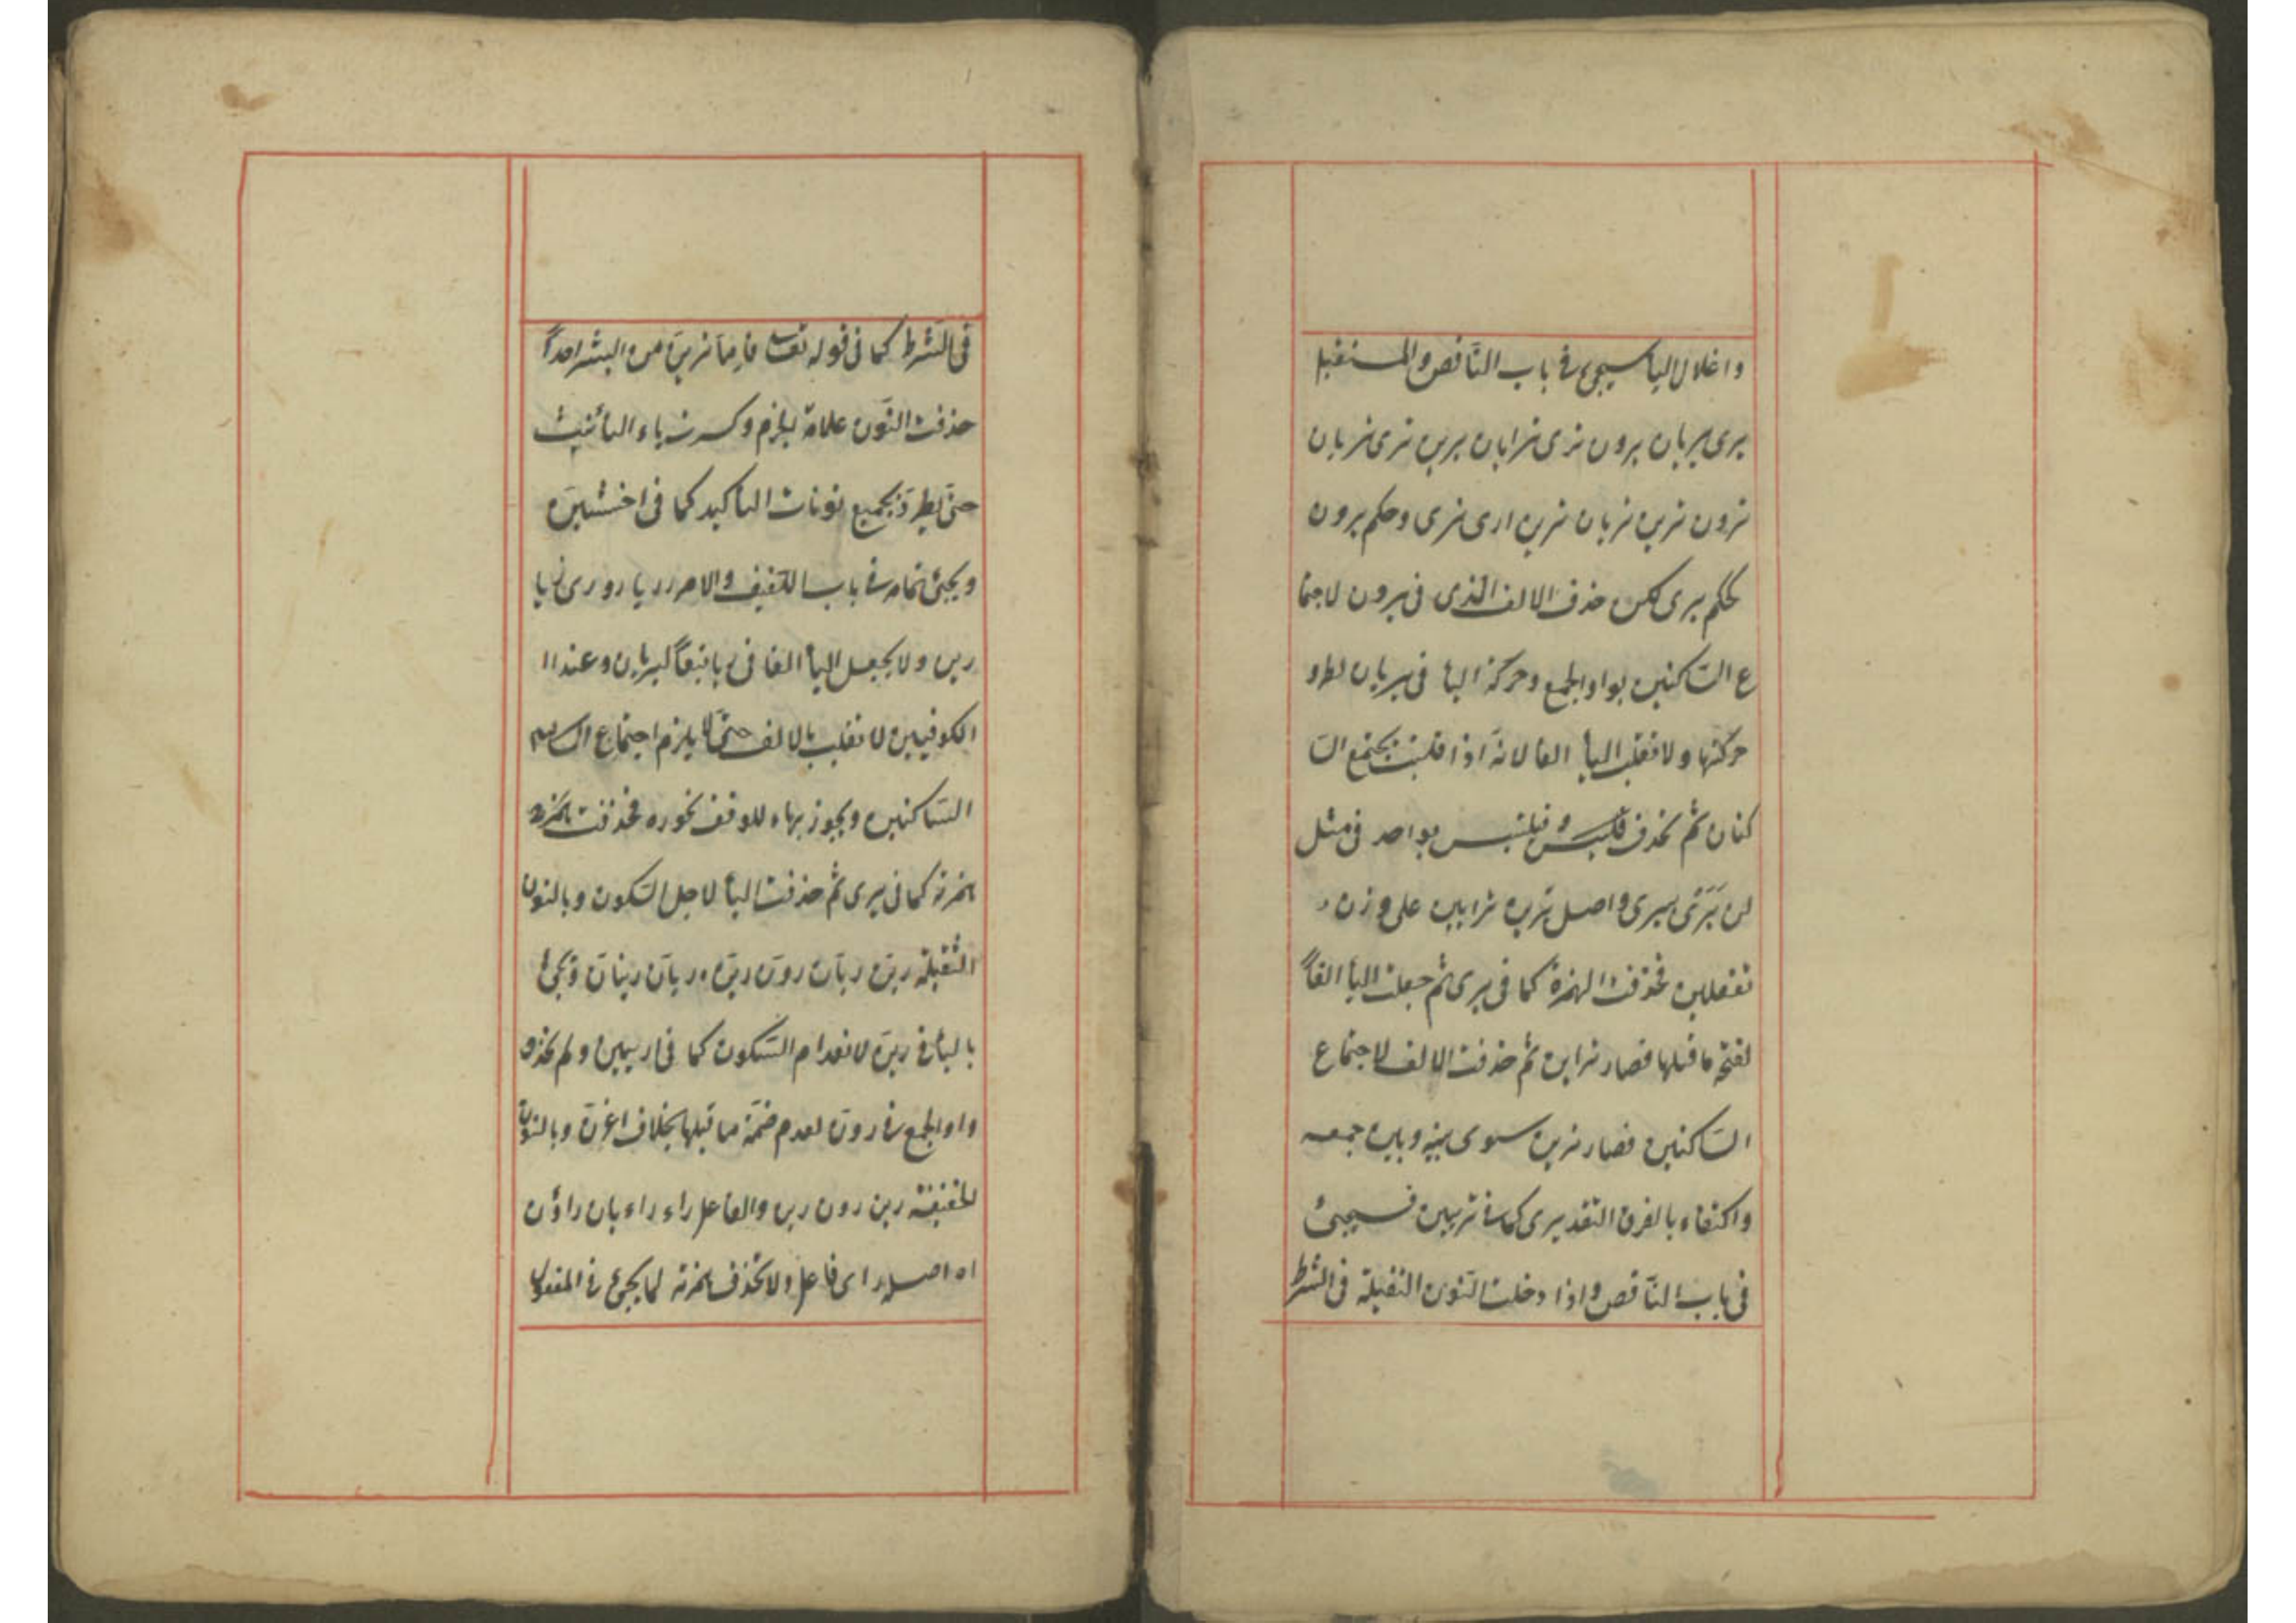 واعلال اليأ سيجئ فى باب النّاقص والمستقبل
يرى يريان يرون ترى ترايان يرين ترى تريان
ترون ترين تريان ترين ارى نرى وحكم يرون
كحكم يرى لكن حذف الالف الذى فى يرون لاجتما
ع السّاكنين بواو الجمع وحركة اليا فى يريان لطرو
حركتها ولا تقلب اليأ الفا لانّه اذا قلبت يجتمع السّا
كنان ثم تحذف فيلتبس بواحد فى مثل
لن يَرَى يرى واصل ترين ترايين على وزن
تفعلين فحذفت الهمزة كما فى يرى ثم جعلت اليأ الفاً
لفتحة ما قبلها فصار تراين ثم حذفت الالف لاجتماع
السّاكنين فصار ترين سوى بينه وبين جمعه
واكتفاء بالفرق التقديرى كما فى ترمين فسيجئ
فى باب النّاقص واذا دخلت النّون الثقيلة فى الشرط
فى الشّرط كما فى قوله تعالى فاِمّا ترينّ من البشر احداً
حذفت النّون علامة للجزم وكسرت ياء التأنيث
حتّى يطرد بجميع نونات التاكيد كما فى اخشينّ
ويجئ تمامه فى باب اللّفيف والامر ر ريا روا رى ريا
رين ولا يجعل اليأ الفا فى ريا تبعاً ليريان وعند ا
الكوفيين لا تقلب بالالف حتّى لا يلزم اجتماع
السّاكنين ويجوز بهاء للوقف نحو ره فحذفت همزته
همزته كما فى يرى ثم حذفت اليأ لاجل السّكون وبالنون
الثّقيلة رينّ ريانّ رونّ رينّ ريانّ رينانّ ويجئ
باليأ فى رينّ لانعدام السّكون كما فى ارمين ولم تحذف
واو الجمع فى رونّ لعدم ضمّة ما قبلها بخلاف اغزنّ وبالنون
الخفيفة رين رون رين والفاعل راء رائيان راؤن
اه اصله راى فاعل ولا تحذف همزته لما يجئ فى المفعول